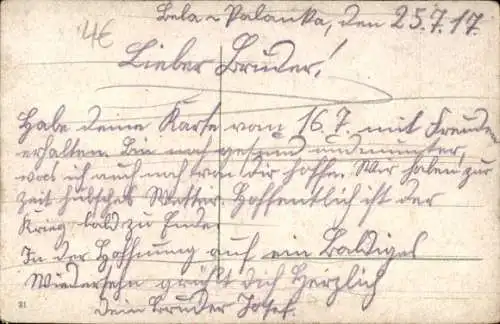 4€
Bela-Palanka, den 25.7.17.
Lieber Bruder!
Habe deine Karte vom 16.7. mit Freude
erhalten. Bin noch gesund und munter,
was ich auch noch von Dir hoffe. Wir haben zur
Zeit hübsches Wetter. Hoffentlich ist der
Krieg bald zu Ende.
In der Hoffnung auf ein Baldiges
Wiedersehn grüßt Dich Herzlich
dein Bruder Josef.
31